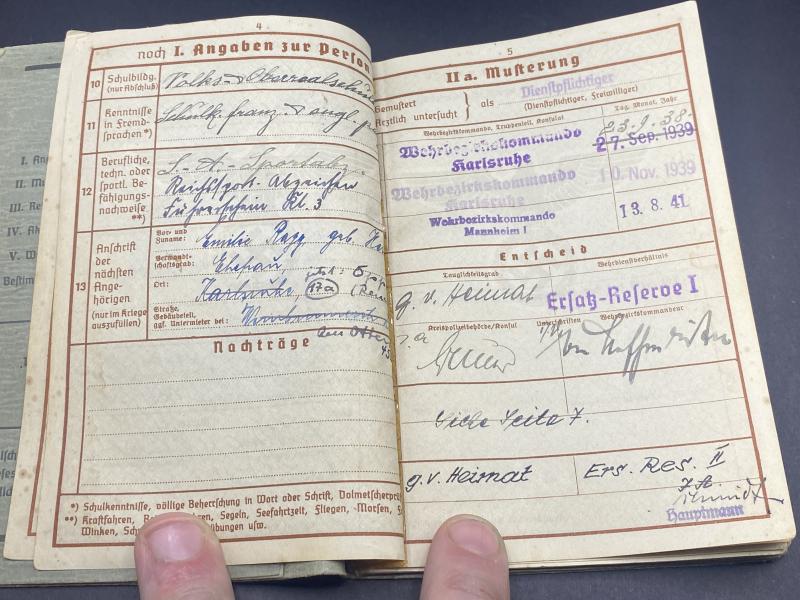 4
noch I. Angaben zur Person
10 Schulbildg. (nur Abschluß)
Volks- & Oberrealschule
11 Kenntnisse in Fremdsprachen*)
Schulk. franz. & engl.
12 Berufliche, techn. oder sportl. Befähigungsnachweise **)
S-A-Sportabz.
Reichssport-Abzeichen
Führerschein Kl. 3
13 Anschrift der nächsten Angehörigen (nur im Kriege auszufüllen)
Vor- und Zuname: Emilie Rapp geb.
Verwandtschaftsgrad: Ehefrau,
Ort: Karlsruhe, 17a
Straße, Gebäudeteil, ggf. Untermieter bei:
Nachträge
*) Schulkenntnisse, völlige Beherrschung in Wort oder Schrift, Dolmetscherprü
**) Kraftfahren, Segeln, Seefahrtzeit, Fliegen, Morsen,
Winken, übungen usw.
5
II a. Musterung
Gemustert
Ärztlich untersucht } als Dienstpflichtiger
(Dienstpflichtiger, Freiwilliger)
Wehrbezirkskommando, Truppenteil, Konsulat
Tag, Monat, Jahr
23.9.38.
Wehrbezirkskommando Karlsruhe
27. Sep. 1939
Wehrbezirkskommando Karlsruhe
10. Nov. 1939
Wehrbezirkskommando Mannheim I
13. 8. 41
Entscheid
Tauglichkeitsgrad
Wehrdienstverhältnis
g. v. Heimat
Ersatz-Reserve I
Kreispolizeibehörde/Konsul
Unterschriften
Wehrbezirkskommandeur
Siehe Seite 7.
g. v. Heimat
Ers. Res. II
I. A.
Schmidt
Hauptmann